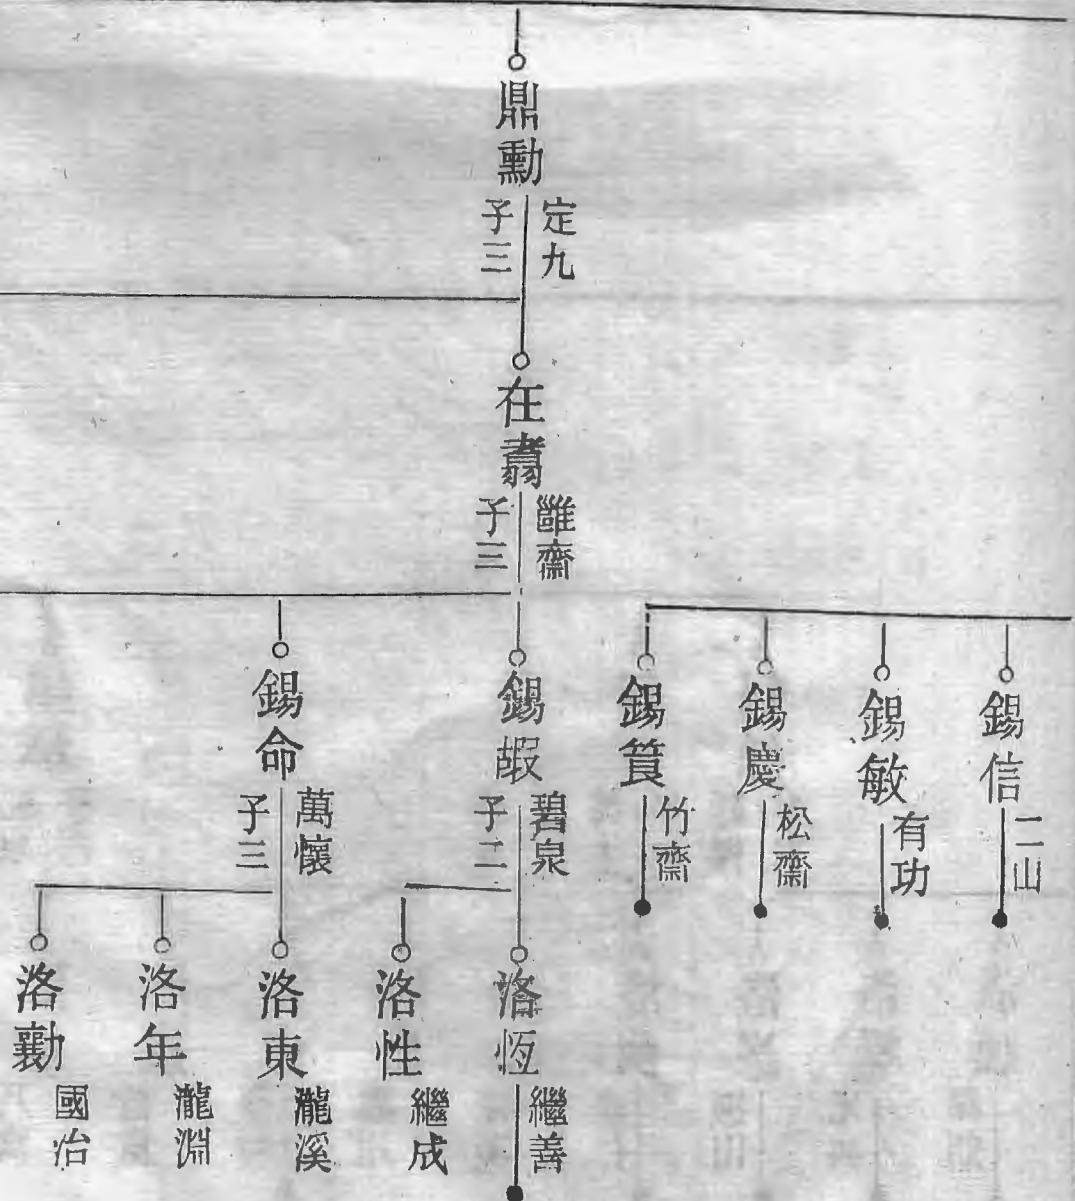 鼎勳
定九
子三
在翥
雝齋
子三
錫信
二山
錫敏
有功
錫慶
松齋
錫
竹齋
錫嘏
碧泉
子二
錫命
萬懷
子三
洛恆
繼善
洛性
繼成
洛東
瀧溪
洛年
瀧淵
洛勷
國治